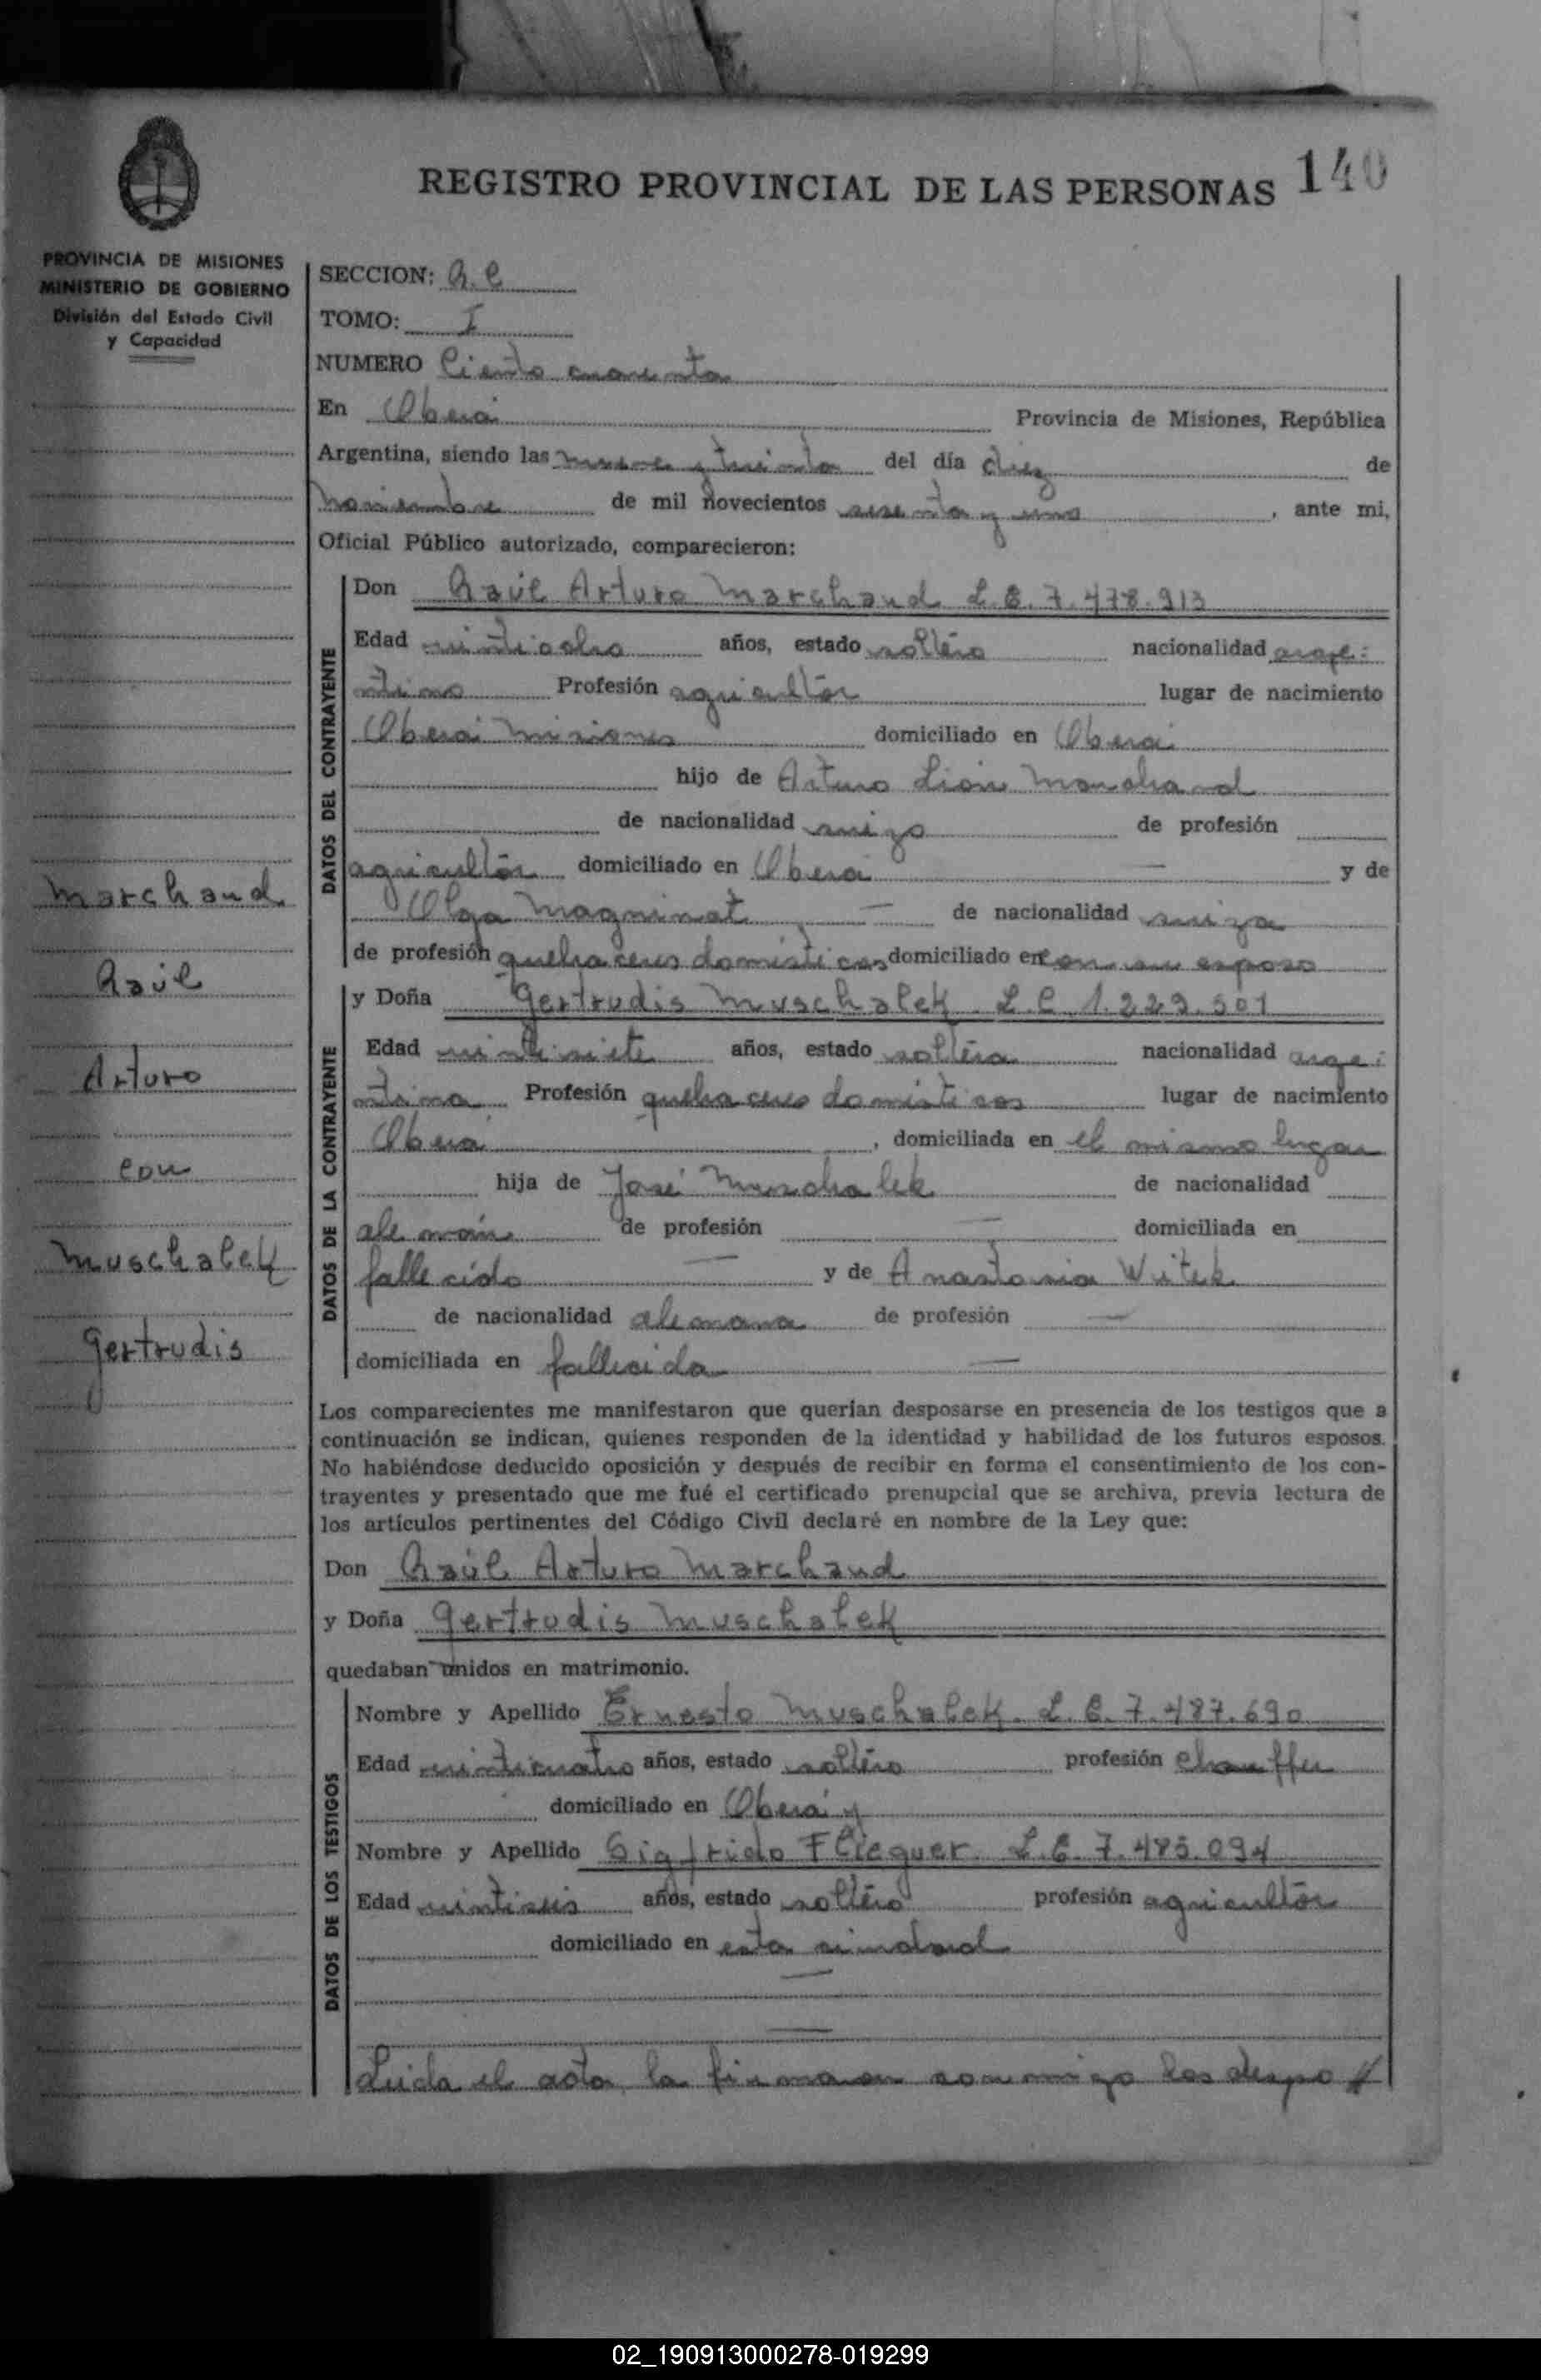 REGISTRO PROVINCIAL DE LAS PERSONAS 140
PROVINCIA DE MISIONES
MINISTERIO DE GOBIERNO
División del Estado Civil
y Capacidad
Marchand
Raúl
Arturo
con
Muschalek
Gertrudis
SECCION: R. C
TOMO: I
NUMERO Ciento cuarenta
En Oberá Provincia de Misiones, República
Argentina, siendo las nueve y treinta del día diez de
noviembre de mil novecientos sesenta y uno, ante mi,
Oficial Público autorizado, comparecieron:
DATOS DEL CONTRAYENTE
Don Raúl Arturo Marchand L.E. 7.478.913
Edad veintiocho años, estado soltero nacionalidad arge:
ntino Profesión agricultor lugar de nacimiento
Oberá Misiones domiciliado en Oberá
hijo de Arturo Marchand
de nacionalidad suizo de profesión
agricultor domiciliado en Oberá — y de
Olga Magninat — de nacionalidad suiza
de profesión quehaceres domésticos domiciliado en con su esposo
DATOS DE LA CONTRAYENTE
y Doña Gertrudis Muschalek L.C 1.223.501
Edad veintisiete años, estado soltera nacionalidad arge:
ntina Profesión quehaceres domésticos lugar de nacimiento
Oberá, domiciliada en el mismo lugar
hija de José Muschalek de nacionalidad
alemán de profesión — domiciliada en
fallecido — y de Anastasia Witek
de nacionalidad alemana de profesión —
domiciliada en fallecida —
Los comparecientes me manifestaron que querían desposarse en presencia de los testigos que a
continuación se indican, quienes responden de la identidad y habilidad de los futuros esposos.
No habiéndose deducido oposición y después de recibir en forma el consentimiento de los con-
trayentes y presentado que me fué el certificado prenupcial que se archiva, previa lectura de
los artículos pertinentes del Código Civil declaré en nombre de la Ley que:
Don Raúl Arturo Marchand
y Doña Gertrudis Muschalek
quedaban unidos en matrimonio.
DATOS DE LOS TESTIGOS
Nombre y Apellido Ernesto Muschalek. L.E. 7.487.690
Edad veinticuatro años, estado soltero profesión chauffer
domiciliado en Oberá y
Nombre y Apellido Sigfrido Flieguer. L.E. 7.485.094
Edad veintiseis años, estado soltero profesión agricultor
domiciliado en esta ciudad
—
—
Leida el acta, la firman conmigo los despo //
02_190913000278-019299